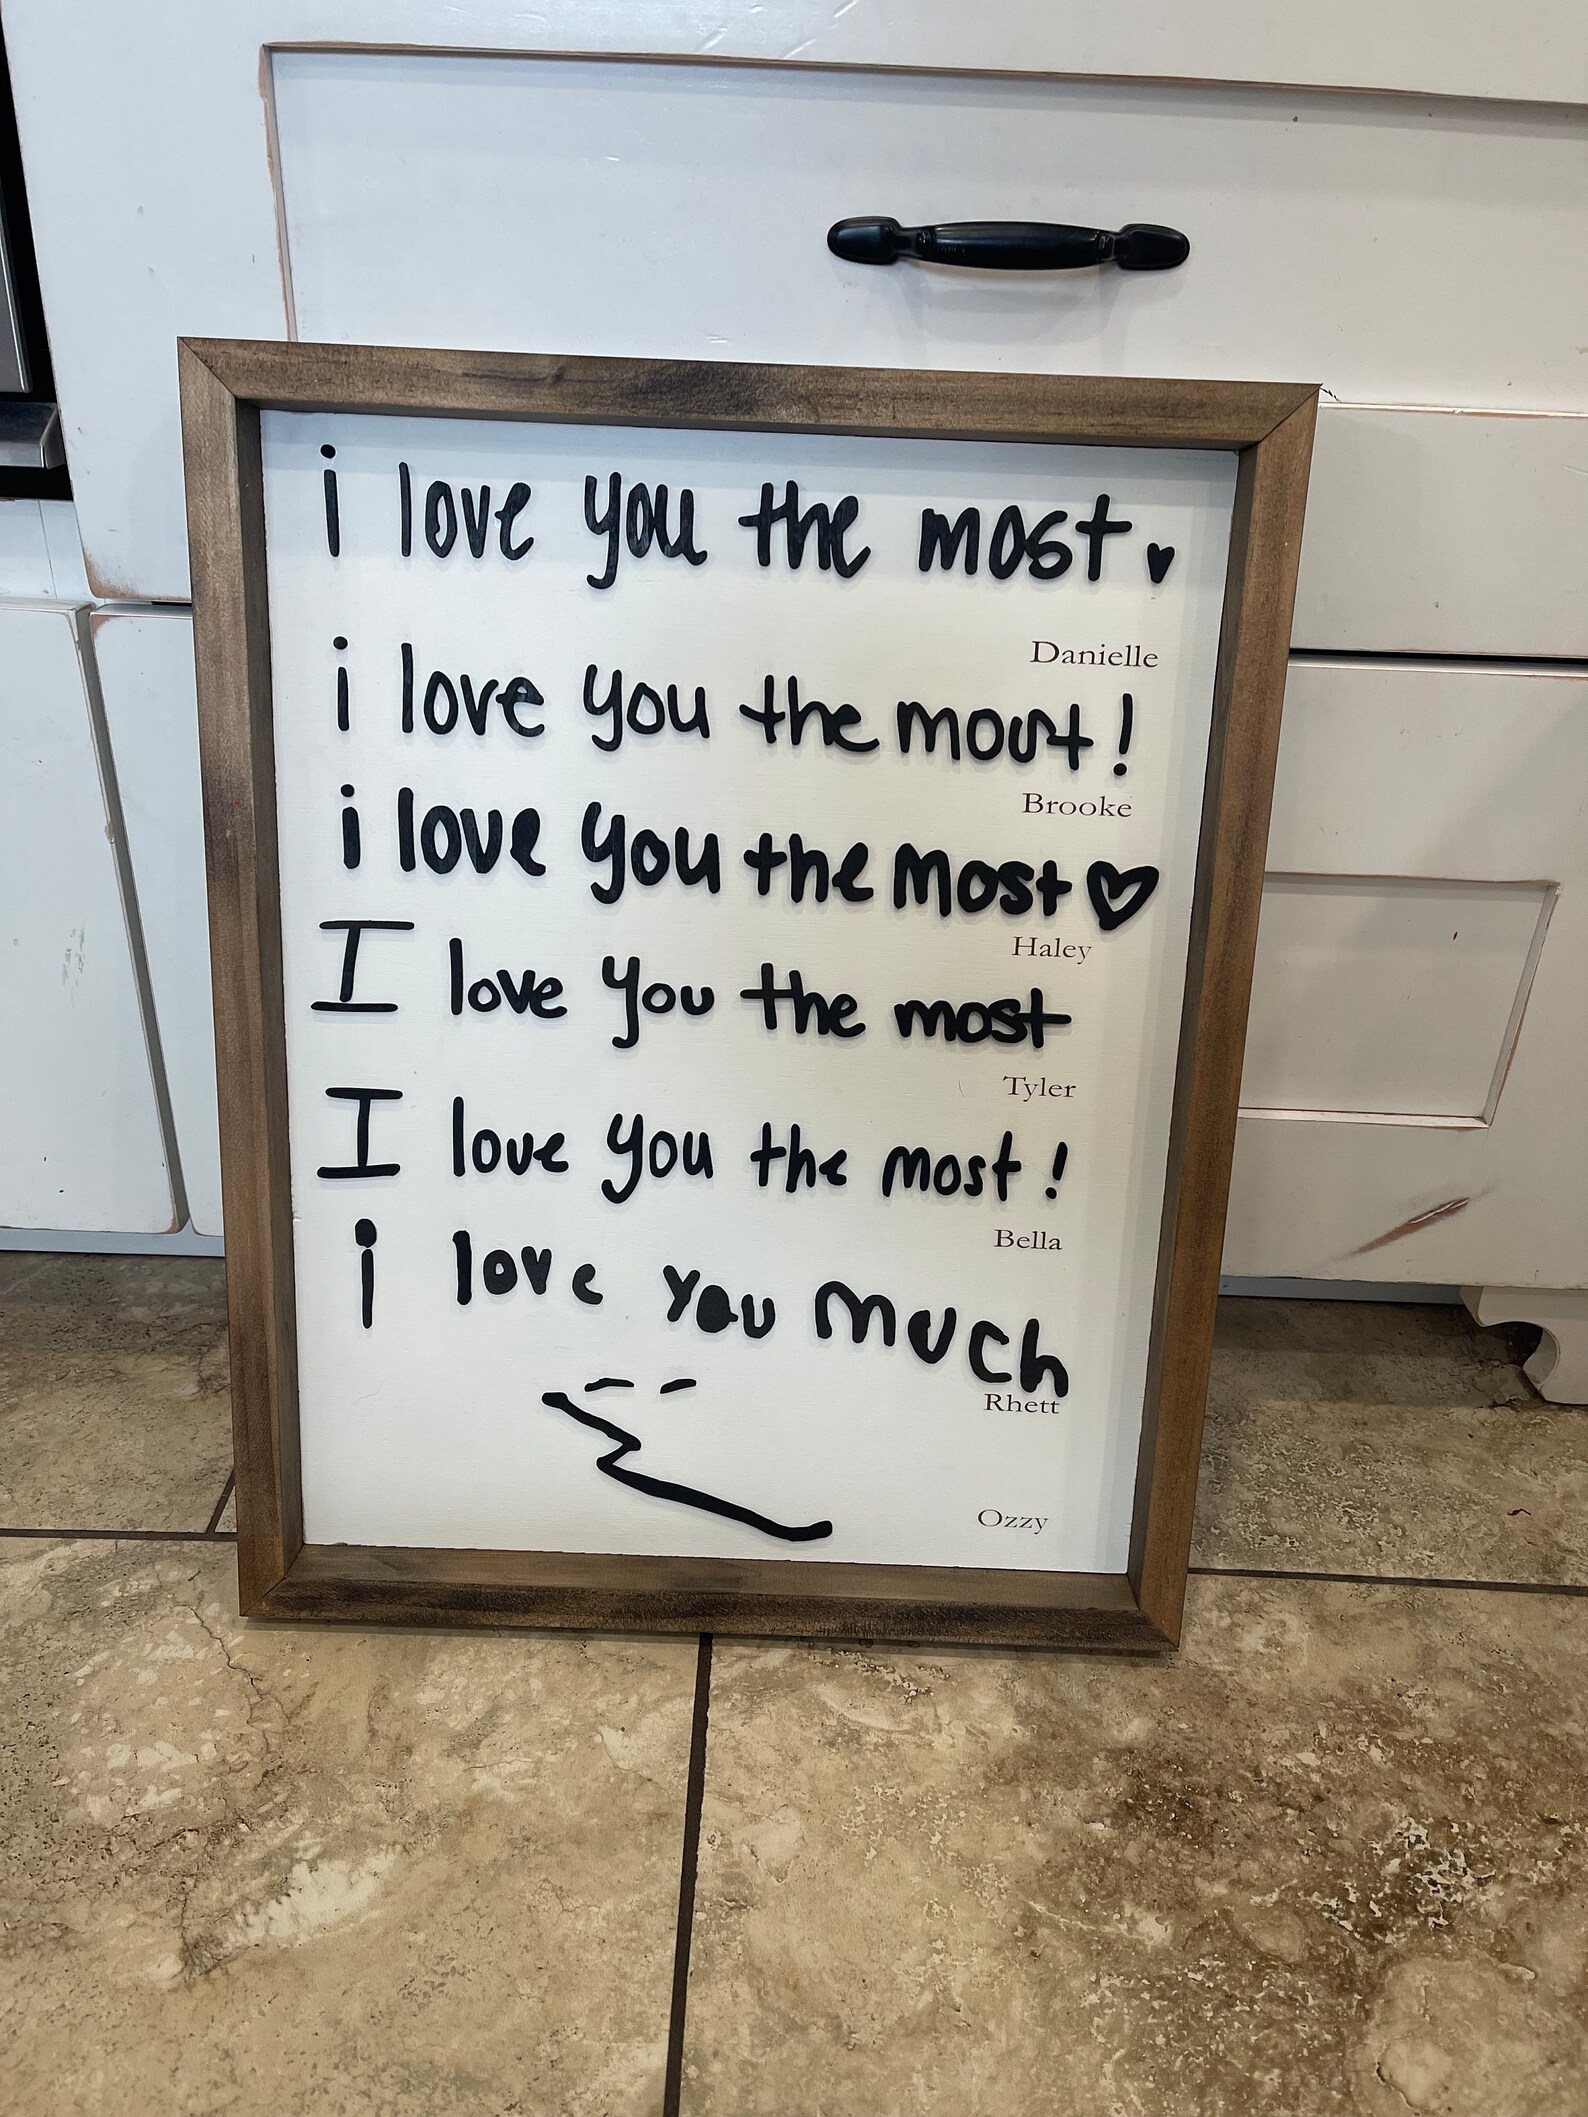 i love you the most ♥
Danielle
i love you the most!
Brooke
i love you the most ♡
Haley
I love you the most
Tyler
I love you the most!
Bella
i love you much
Rhett
Ozzy